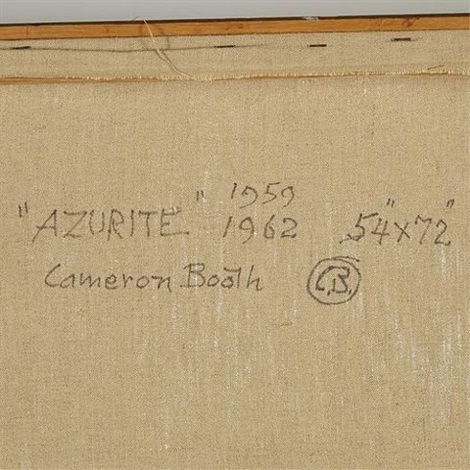 "AZURITE" 1959
1962 54"x72"
Cameron Booth C.B.